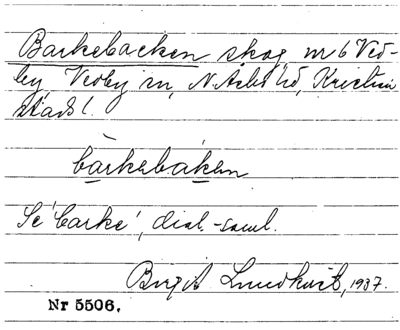 Barkebacken skog nr 6 Ved-
by, Vedby sn, N. Åsbo hd, Kristian
stads l.
bàrkebáken
Se 'barke', dial.-saml.
Birgit Lundkvist, 1937.
Nr 5506.